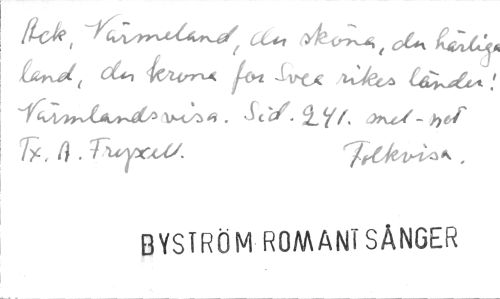 Ack, Värmeland, du sköna, du härliga
land, du krona for Svea rikes länder!
Värmlandsvisa. Sid. 241. mel-not
Tx. A. Fryxell. Folkvisa.
BYSTRÖM ROMANT SÅNGER